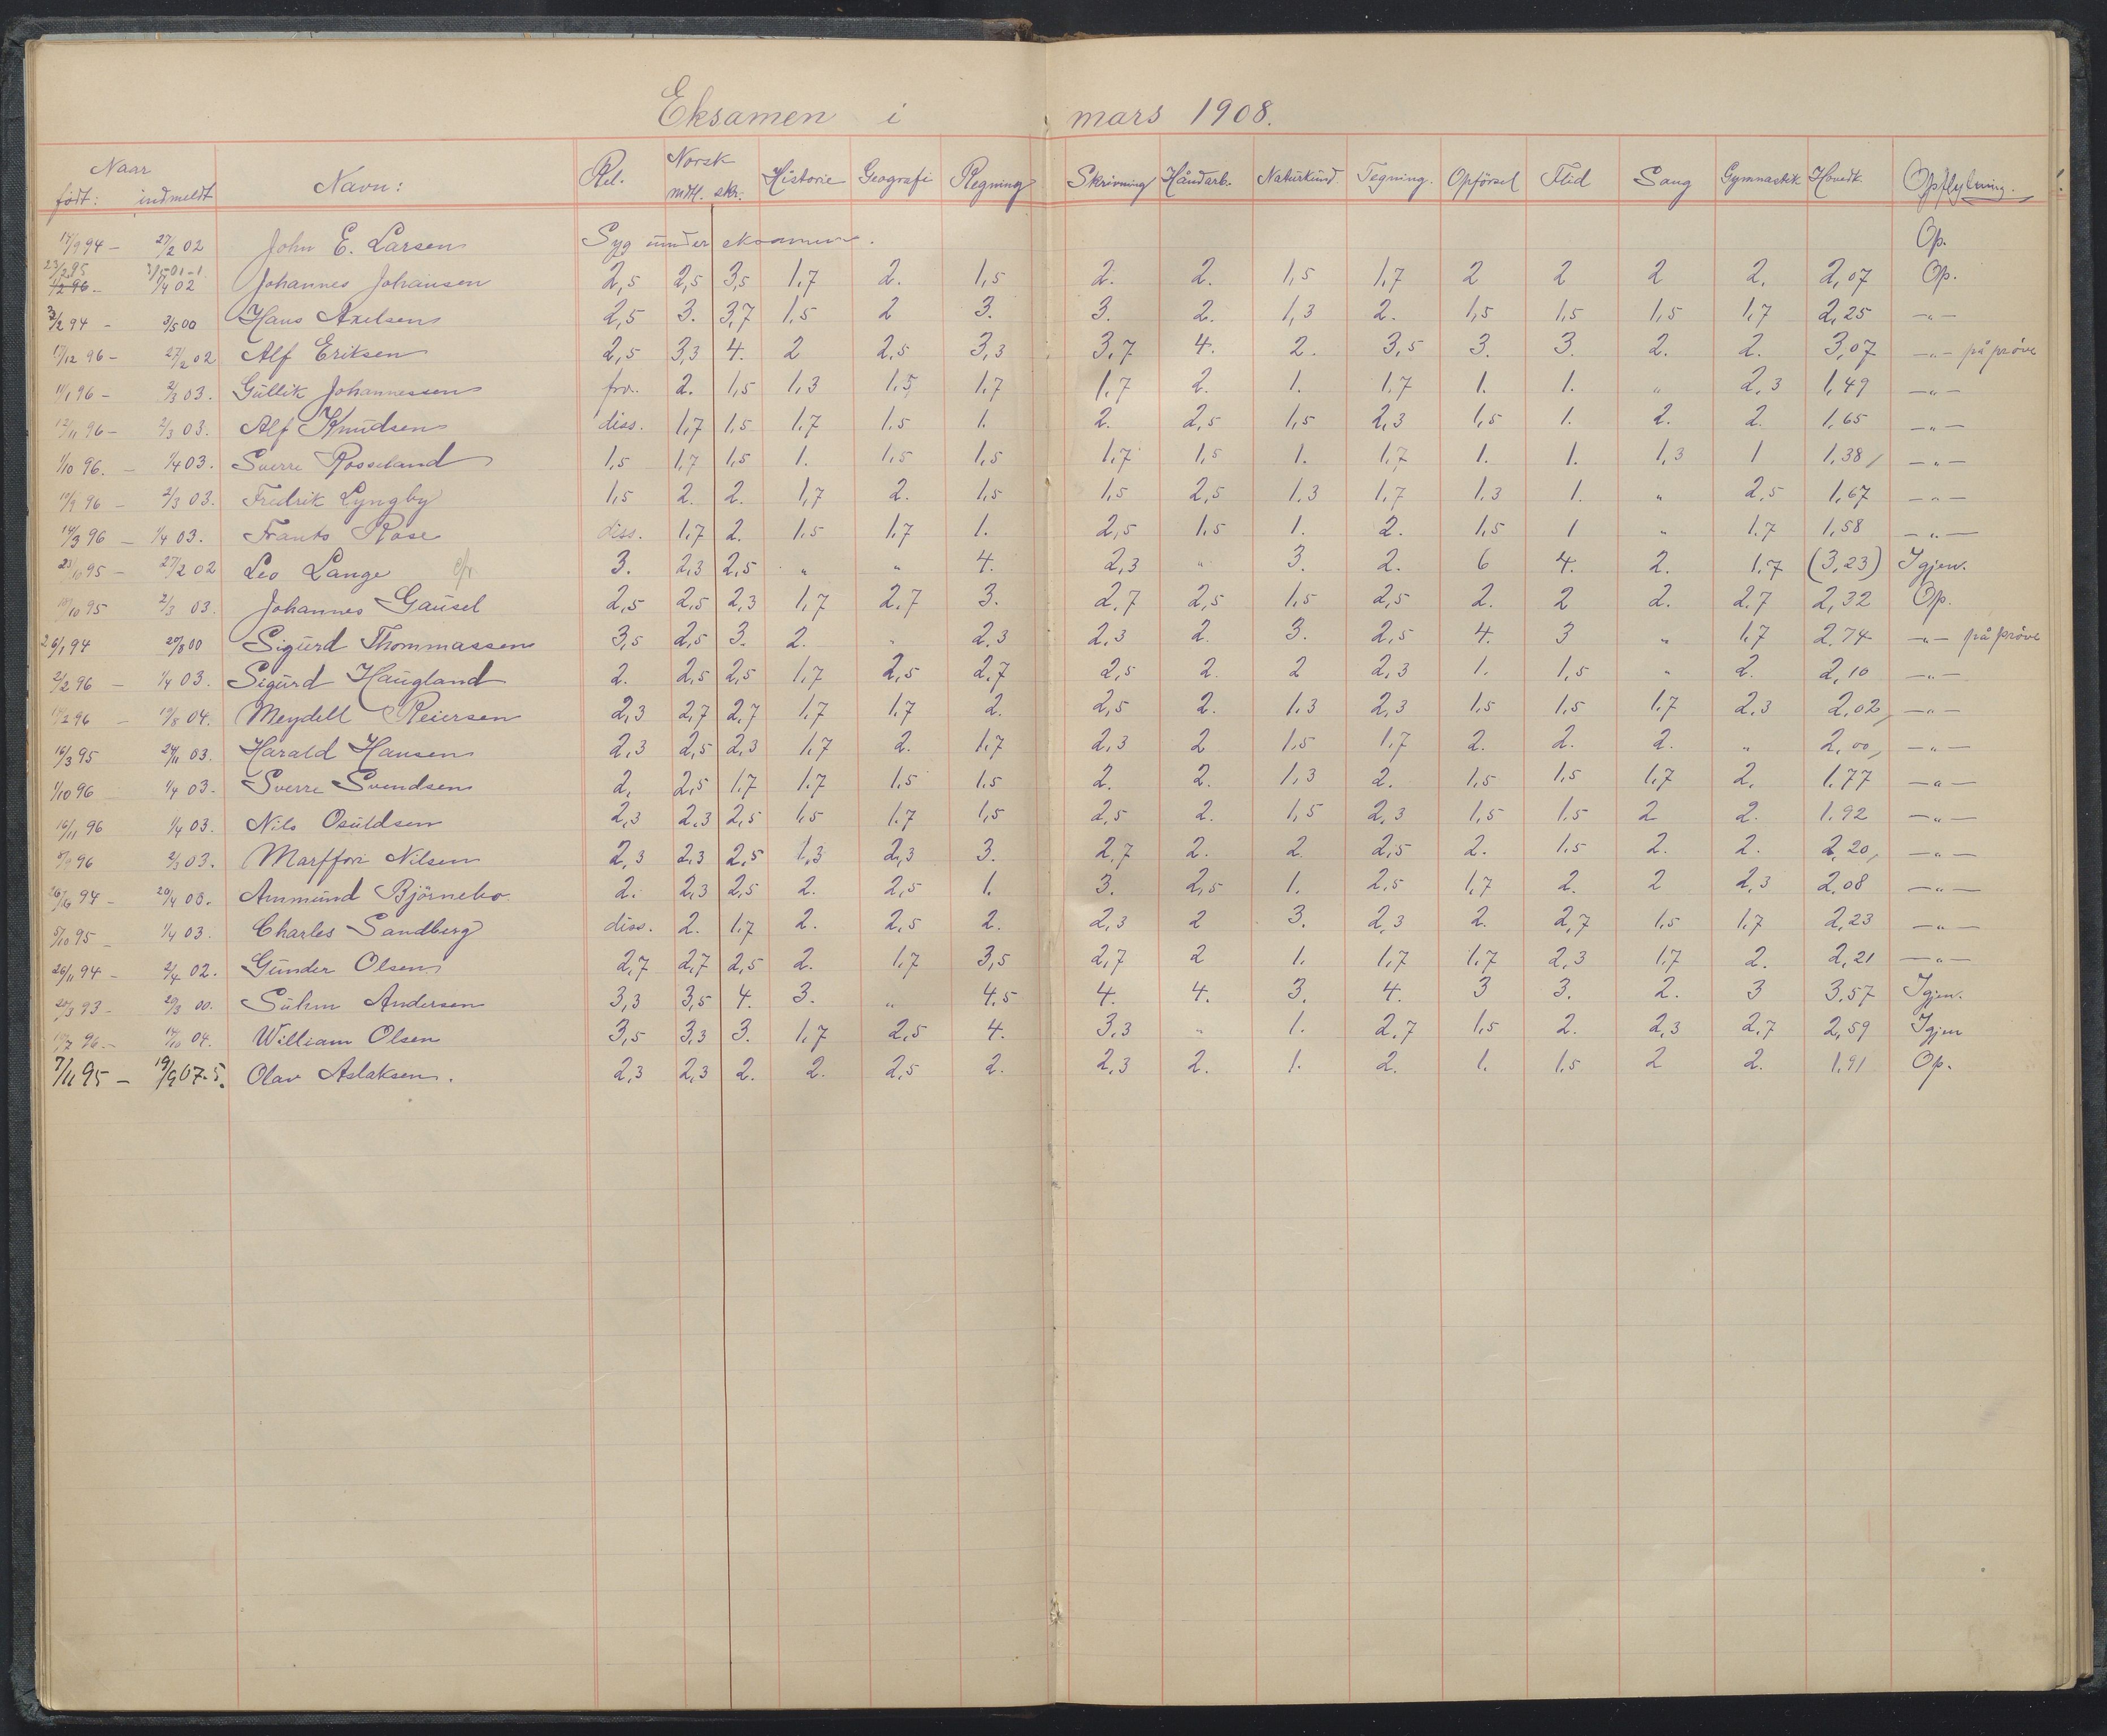 Eksamen i mars 1908.
Naar
født: indmeldt Navn: Rel. Norsk mdtl. skr. Historie Geografi Regning Skrivning Håndarb. Naturkund Tegning. Opførsel Flid Sang Gymnastik Hovedk Opflytning.
14/9 94 – 27/2 02 John E. Larsen Syg under eksamen. Op.
23/2 95 3/5 01-1
1/2 96 – 1/4 02 Johannes Johansen 2,5 2,5 3,5 1,7 2. 1,5 2. 2. 1,5 1,7 2 2 2 2, 2,07 Op.
3/2 94 – 3/5 00 Hans Axelsen 2,5 3. 3,7 1,5 2 3. 3. 2. 1,3 2. 1,5 1,5 1,5 1,7 2,25 –„–
17/12 96 – 27/2 02 Alf Eriksen 2,5 3,3 4. 2 2,5 3,3 3,7 4. 2. 3,5 3. 3. 2. 2. 3,07 –„– på prøve
11/1 96 – 2/3 03. Gullik Johannessen fra. 2. 1,5 1,3 1,5 1,7 1,7 2. 1. 1,7 1. 1. „ 2,3 1,49 –„–
12/11 96 – 2/3 03. Alf Knudsen diss. 1,7 1,5 1,7 1,5 1. 2. 2,5 1,5 2,3 1,5 1. 2. 2. 1,65 –„–
1/10 96. – 1/4 03. Sverre Rosseland 1,5 1,7 1,5 1. 1,5 1,5 1,7 1,5 1. 1,7 1. 1. 1,3 1 1,38, –„–
10/9 96 – 2/3 03. Fredrik Lyngby 1,5 2. 2. 1,7 2. 1,5 1,5 2,5 1,3 1,7 1,3 1. „ 2,5 1,67 –„–
14/3 96 – 1/4 03. Frants Rose diss. 1,7 2. 1,5 1,7 1. 2,5 1,5 1. 2. 1,5 1 „ 1,7 1,58 –„–
23/10 95 – 27/2 02 Leo Lange 3. 2,3 2,5 „ „ 4. 2,3 „ 3. 2. 6 4. 2. 1,7 (3,23) Igjen.
10/10 95 2/3 03. Johannes Gausel 2,5 2,5 2,3 1,7 2,7 3. 2,7 2,5 1,5 2,5 2. 2 2. 2,7 2,32 Op.
26/1 94 20/8 00 Sigurd Thommassen 3,5 2,5 3. 2. „ 2,3 2,3 2. 3. 2,5 4. 3 „ 1,7 2,74 –„– på prøve
2/2 96 – 1/4 03. Sigurd Haugland 2. 2,5 2,5 1,7 2,5 2,7 2,5 2. 2 2,3 1. 1,5 „ 2. 2,10 –„–
19/2 96 – 19/8 04. Meydell Reiersen 2,3 2,7 2,7 1,7 1,7 2. 2,5 2. 1,3 2,3 1,5 1,5 1,7 2,3 2,02, –„–
16/3 95 24/11 03. Harald Hansen 2,3 2,5 2,3 1,7 2. 1,7 2,3 2 1,5 1,7 2. 2. 2. „ 2,00, –„–
1/10 96 1/4 03. Sverre Svendsen 2, 2,5 1,7 1,7 1,5 1,5 2. 2. 1,3 2. 1,5 1,5 1,7 2, 1,77 –„–
16/11 96 1/4 03. Nils Osuldsen 2,3 2,3 2,5 1,5 1,7 1,5 2,5 2. 1,5 2,3 1,5 1,5 2 2. 1,92 –„–
96 2/3 03. Nilsen 2,3 2,3 2,5 1,3 2,3 3. 2,7 2. 2. 2,5 2. 1,5 2. 2. 2,20, –„–
94 – 20/4 03. Ammund Bjørnebo 2. 2,3 2,5 2. 2,5 1. 3. 2,5 1. 2,5 1,7 2. 2 2,3 2,08 –„–
5/10 95 – 1/4 03. Charles Sandberg diss. 2. 1,7 2. 2,5 2. 2,3 2 3. 2,3 2. 2,7 1,5 1,7 2,23 –„–
26/11 94 – 2/4 02. Gunder Olsen 2,7 2,7 2,5 2. 1,7 3,5 2,7 2 1. 1,7 1,7 2,3 1,7 2. 2,21 –„–
20/3 93 – 20/3 00. Suhm Andersen 3,3 3,5 4. 3. „ 4,5 4. 4. 3. 4. 3 3. 2. 3 3,57 Igjen.
17/7 96 – 17/10 04. William Olsen 3,5 3,3 3. 1,7 2,5 4. 3,3 „ 1. 2,7 1,5 2. 2,3 2,7 2,59 Igjen
7/11 95 – 19/9 07-5. Olav Aslaksen. 2,3 2,3 2. 2. 2,5 2. 2,3 2. 1. 2. 1. 1,5 2 2. 1,91 Op.